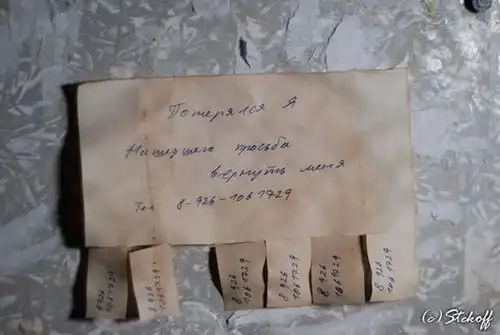 Потерялся Я
Нашедшего просьба
вернуть меня
Тел 8-926-1061729
8 926
1061729
8 926
1061729
8 926
1061729
8 926
1061729
8 926
1061729
8 926
1061729
(c) Stekoff